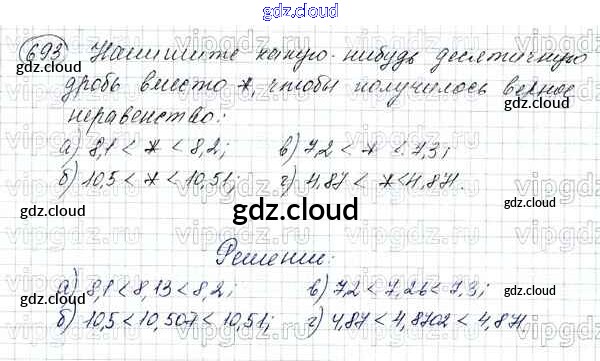 gdz.cloud
693 Напишите какую-нибудь десятичную
дробь вместо *, чтобы получилось верное
неравенство:
а) 8,1 < * < 8,2; в) 7,2 < * < 7,3;
б) 10,5 < * < 10,51; г) 4,87 < * < 4,871.
gdz.cloud
Решение:
а) 8,1 < 8,13 < 8,2; в) 7,2 < 7,26 < 7,3;
б) 10,5 < 10,507 < 10,51; г) 4,87 < 4,8702 < 4,871.
gdz.cloud